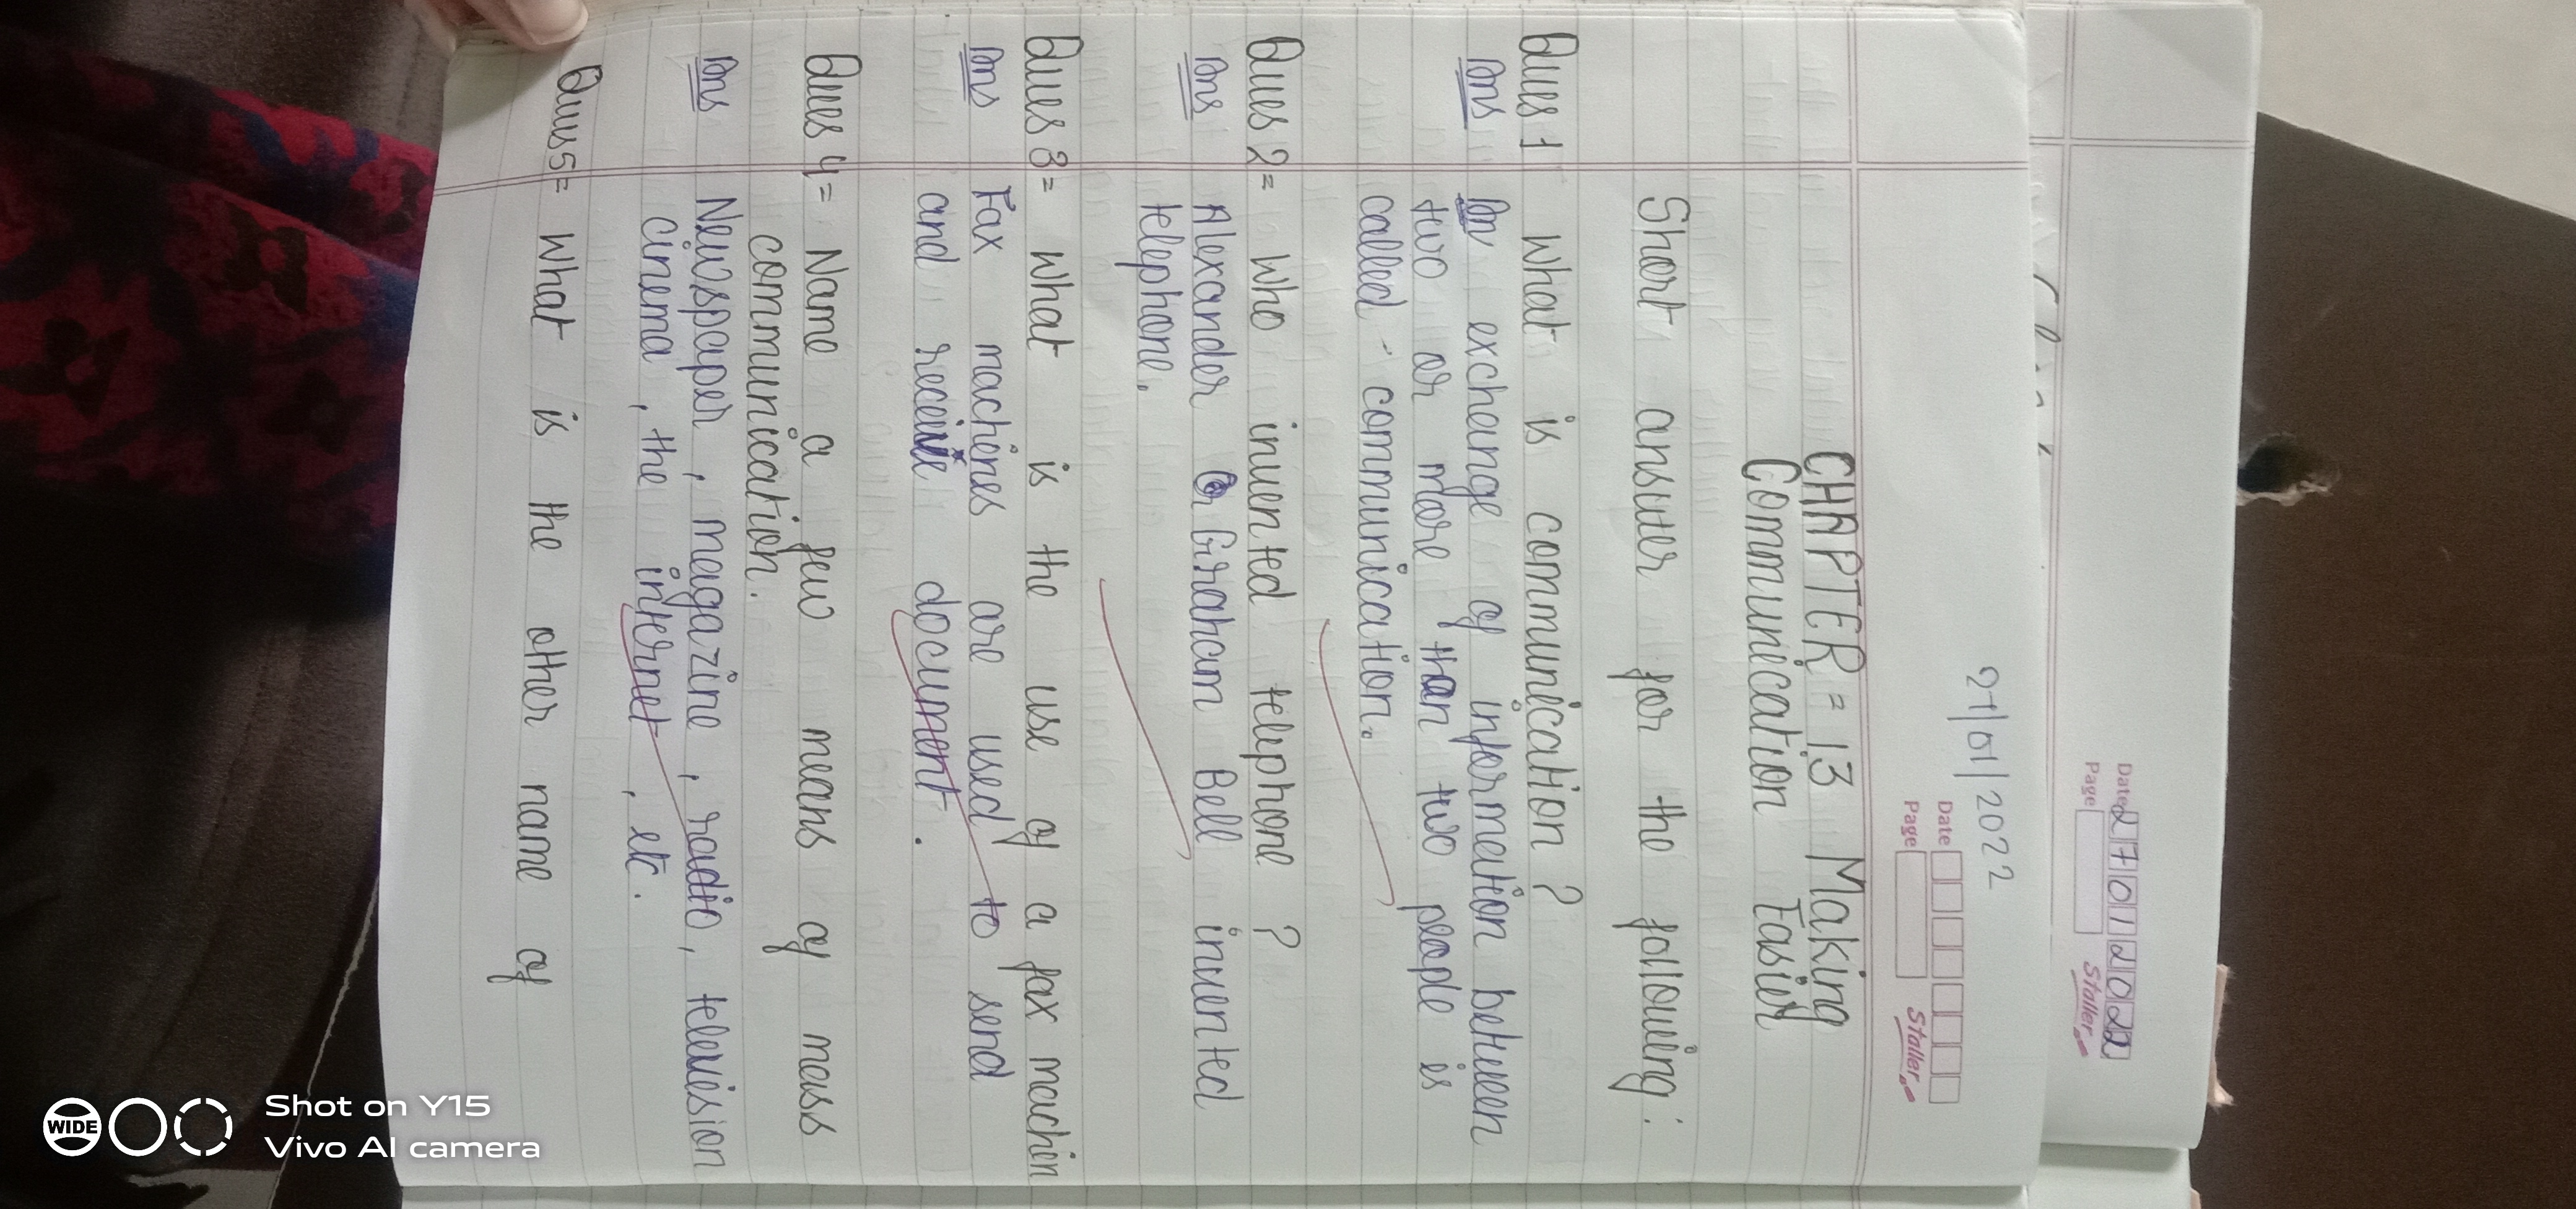 Date 27012022
Page
Staller
27/01/2022
Date
Page
Staller
CHAPTER = 13 Making
Communication Easier
Short answer for the following:
Ques 1 What is communication?
Ans exchange of information between
two or more than two people is
called communication.
Ques 2= Who invented telephone?
Ans Alexander Graham Bell invented
telephone.
Ques 3= What is the use of a fax machin
Ans Fax machines are used to send
and receive document.
Ques 4= Name a few means of mass
communication.
Ans Newspaper, megazine, radio, television
cinema, the internet, etc.
Ques 5= What is the other name of
WIDE
Shot on Y15
Vivo AI camera